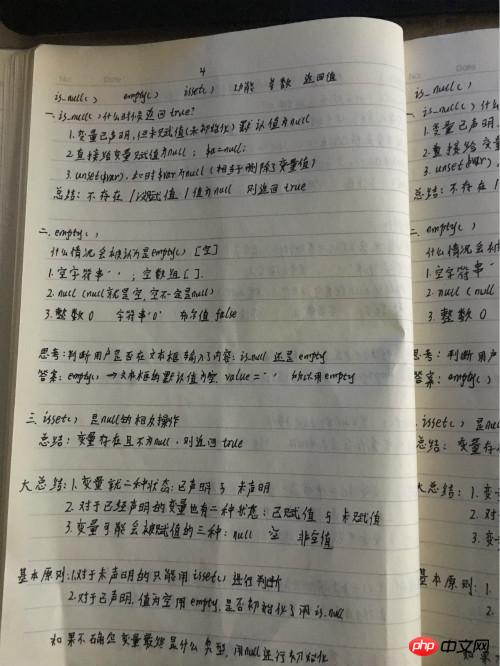 No.
Date
4
is_null( ) empty( ) isset( ) 功能 参数 返回值
一. is_null( )什么时候返回true?
1.变量已声明,但未赋值(未初始化)默认值为null
2.直接给变量赋值为null ; $a=null;
3.unset($var),此时$var为null(相当于删除了变量值)
总结: 不存在 / 没赋值 / 值为null 则返回true
二. empty( )
什么情况会被认为是empty() [空]
1.空字符串' ' ; 空数组[ ].
2.null (null就是空,空不一定是null)
3.整数0 字符串'0' 布尔值false
思考:判断用户是否在文本框输入了内容: is_null 还是 empty
答案: empty() → 文本框的默认值为空 value=' ' 所以用empty
三. isset( ) 是null的相反操作
总结: 变量存在且不为null,则返回true
大总结: 1.变量就二种状态:已声明与未声明
2.对于已经声明的变量也有二种状态: 已赋值与未赋值
3.变量可能会被赋值的三种: null 空 非空值
基本原则:1.对于未声明的只能用isset( )进行判断
2.对于已声明,值为空用empty,是否初始化了用is_null
如果不确定变量最终是什么类型,用null进行初始化
No
Date
is_null( )
一. is_null( )什
1.变量已声明,
2.直接给变量
3.unset($var)
总结: 不存在 /
二. empty( )
什么情况会被
1.空字符串'
2.null (null
3.整数0
思考: 判断用户
答案: empty( )
. isset( ) 是nul
总结: 变量存在
大总结: 1.变
2.对
3.变
基本原则: 1.
2.
如果
php中文网